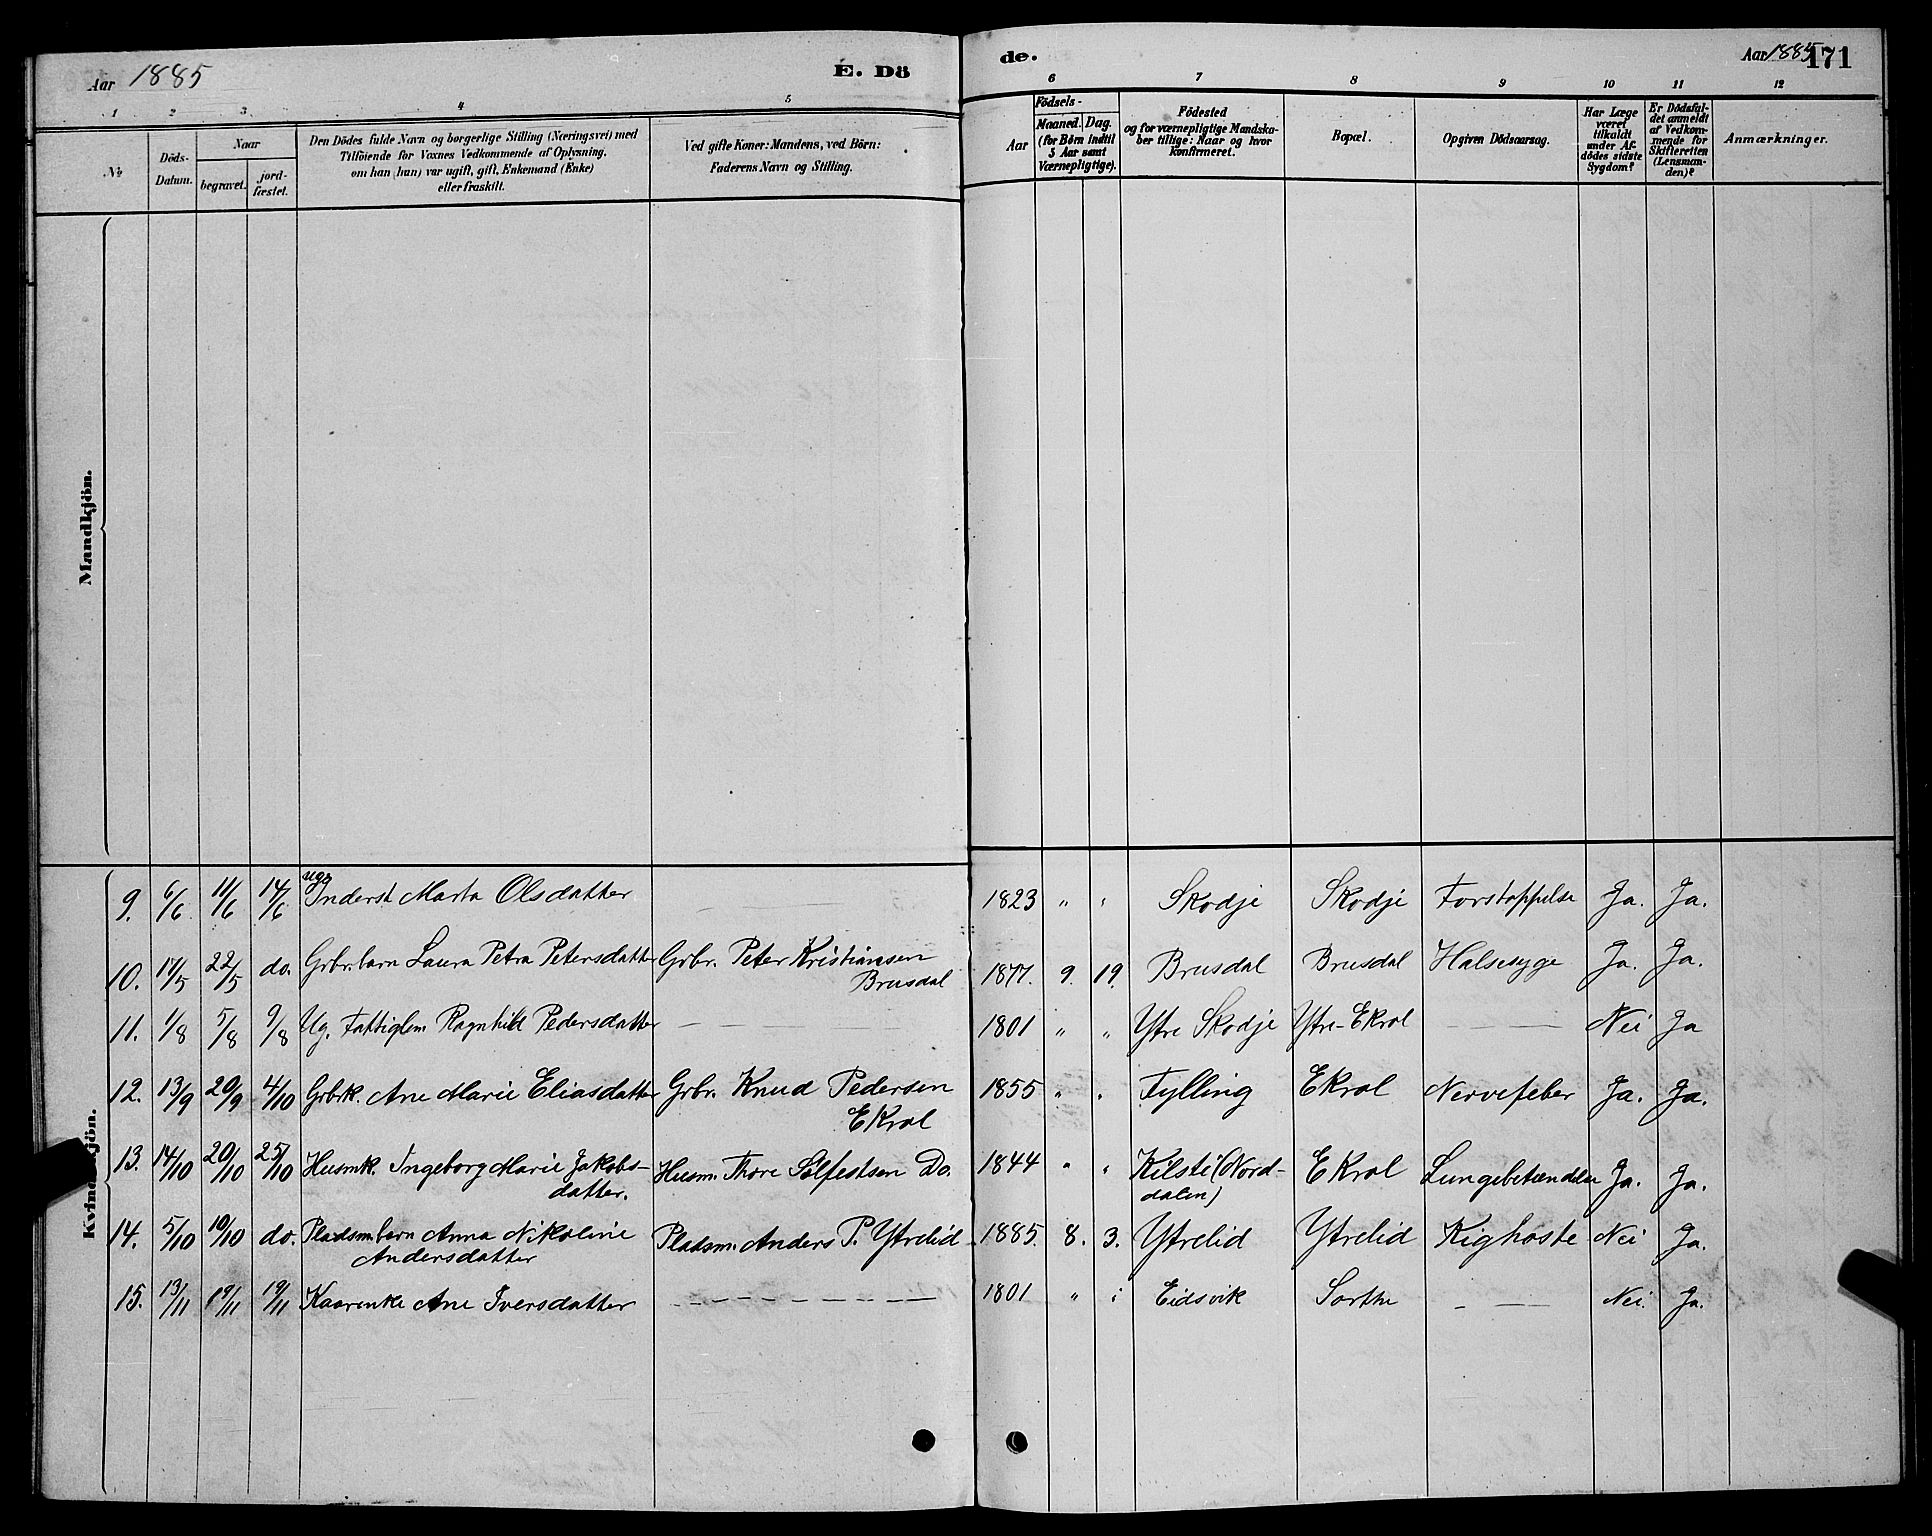 Aar 1885
E. Dö
de.
Aar 1885
171
1 2 3 4 5 6 7 8 9 10 11 12
No
Döds-
Datum.
Naar
begravet.
jord-
fæstet.
Den Dödes fulde Navn og borgerlige Stilling (Næringsvei) med
Tilföiende for Voxnes Vedkommende af Oplysning,
om han (hun) var ugift, gift, Enkemand (Enke)
eller fraskilt.
Ved gifte Koner: Mandens, ved Börn:
Faderens Navn og Stilling.
Födsels-
Aar
Maaned. Dag.
(for Börn indtil
5 Aar samt
Værnepligtige).
Födested
og for værnepligtige Mandska-
ber tillige: Naar og hvor
konfirmeret.
Bopæl.
Opgiven Dödsaarsag.
Har Læge
været
tilkaldt
under Af-
dödes sidste
Sygdom?
Er Dödsfal-
det anmeldt
af Vedkom-
mende for
Skifteretten
(Lensman-
den)?
Anmærkninger.
Mandkjön.
Kvindekjön.
9. 6/6 11/6 14/6 ugg Inderst Marta Olsdatter — 1823 " " Skodje Skodje Forstoppelse Ja. Ja.
10. 17/5 22/5 do. Grbr.barn Laura Petra Petersdatter Grbr. Peter Kristiansen
Brusdal 1877. 9. 19. Brusdal Brusdal Halsesyge Ja. Ja.
11. 1/8 5/8 9/8 Ug. Fattiglem Ragnhild Pedersdatter — — — 1801 " " Ytre Skodje Ytre-Ekrol — — Nei Ja
12. 13/9 20/9 4/10 Grbrk. Ane Marie Eliasdatter Grbr. Knud Pedersen
Ekrol 1855 " " Fylling Ekrol Nervefeber Ja. Ja.
13. 14/10 20/10 25/10 Husmk. Ingeborg Marie Jakobs-
datter. Husm. Thore Solfestsen Do. 1844 " " Kilsti (Nord-
dalen) Ekrol Lungebetændelse Ja. Ja.
14. 5/10 10/10 do. Pladsm.barn Anna Nikoline
Andersdatter Pladsm. Anders P. Ytrelid 1885. 8. 3. Ytrelid Ytrelid Kighoste Nei Ja.
15. 13/11 19/11 19/11 Kaarenke Ane Iversdatter — — — 1801 " " Eidsvik — — Nei. Ja.